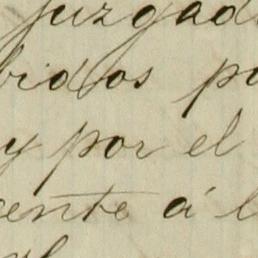 juzgad
bidos po
y por el
ente á l